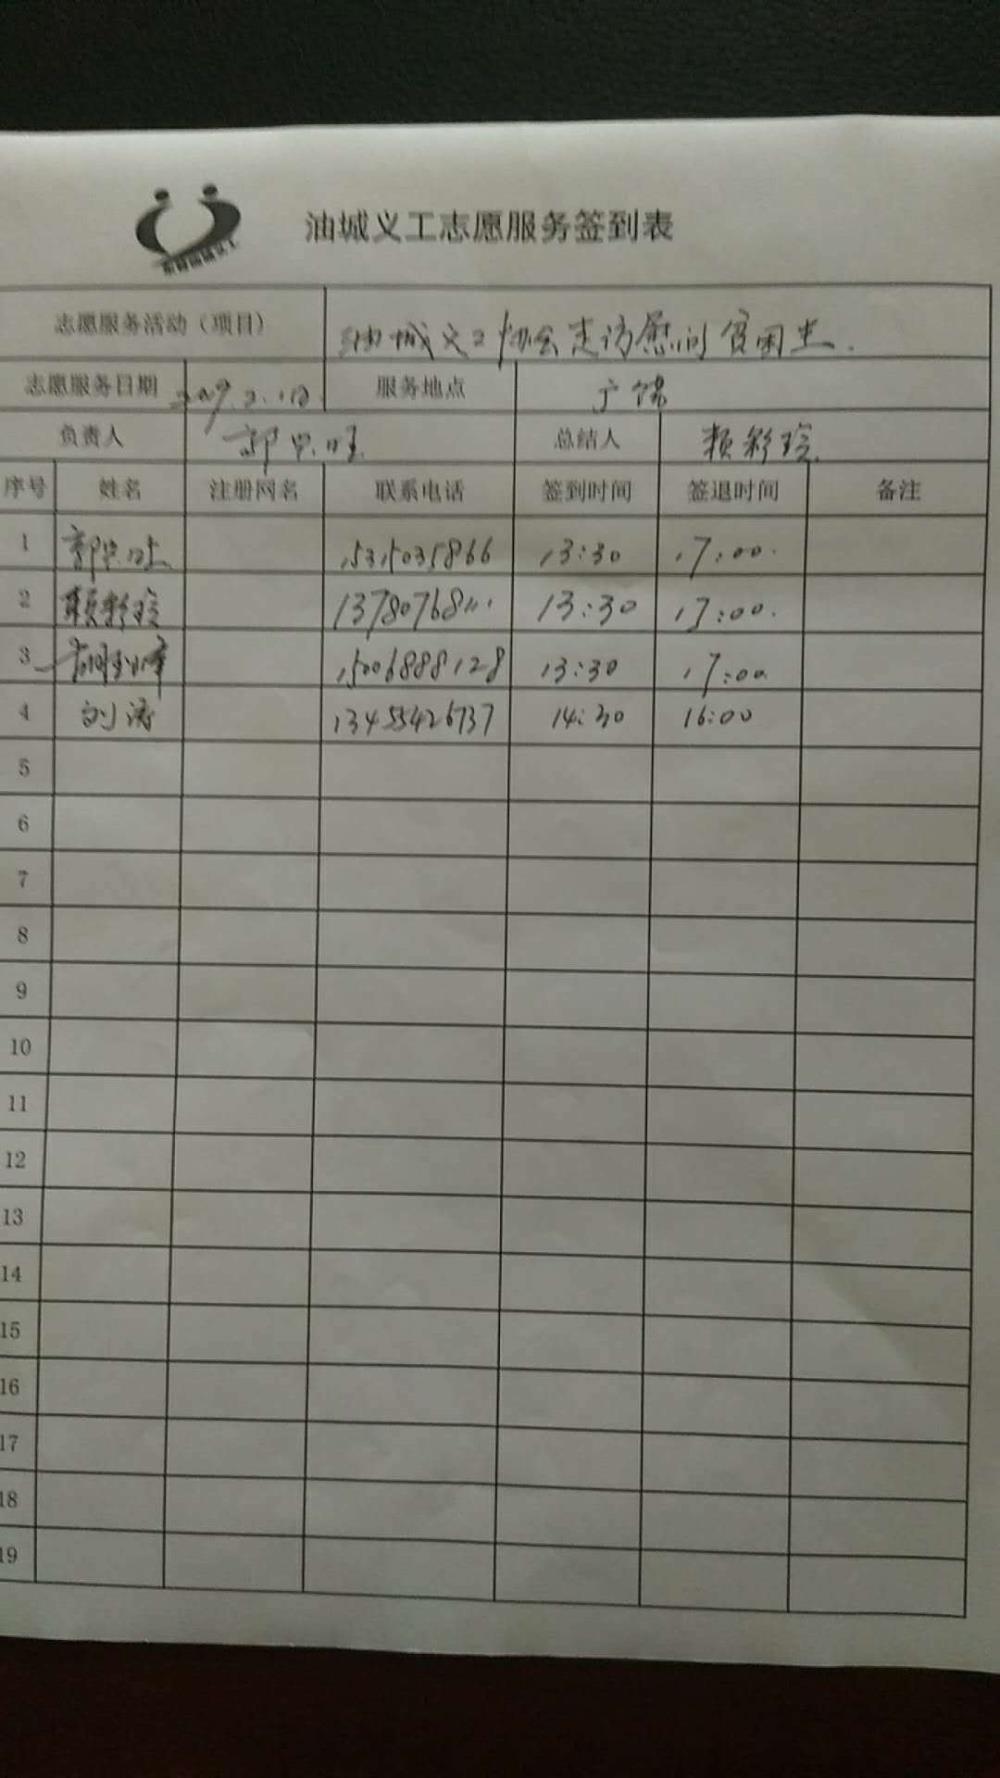 油城义工志愿服务签到表
志愿服务活动（项目） 油城义工协会走访慰问贫困生.
志愿服务日期 服务地点 广饶
负责人 总结人 赖彩玲
序号 姓名 注册网名 联系电话 签到时间 签退时间 备注
1 15315035866 13:30 17:00.
2 赖彩玲 13780768111 13:30 17:00.
3 15006888128 13:30 17:00.
4 刘涛 13455426737 14:30 16:00
5
6
7
8
9
10
11
12
13
14
15
16
17
18
19